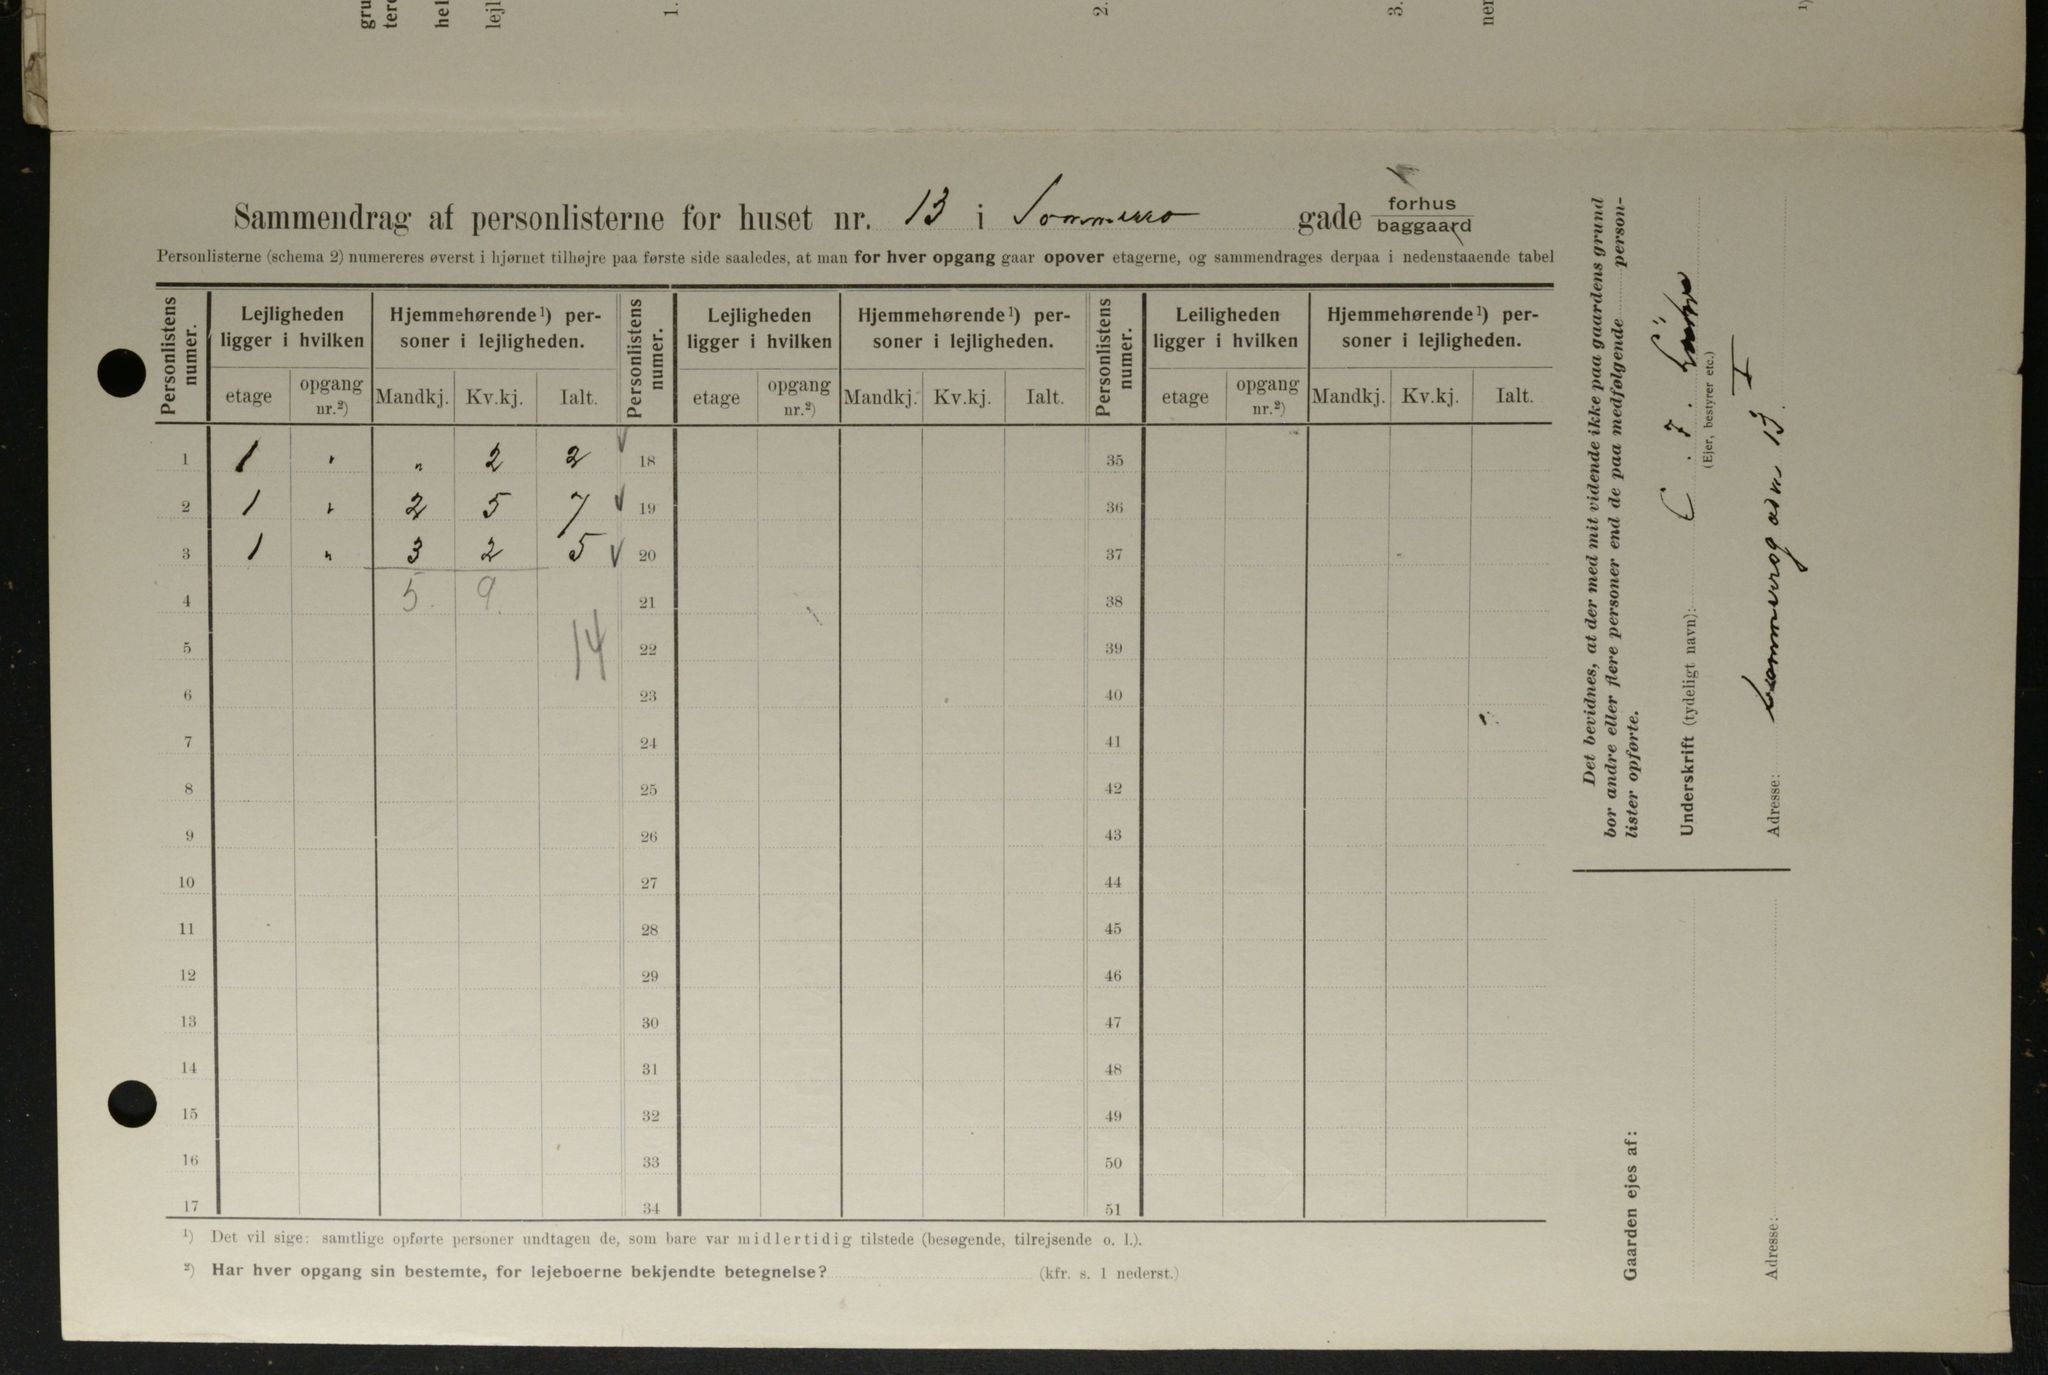 Sammendrag af personlisterne for huset nr. 13 i Sommerro gade forhus baggaard
Personlisterne (schema 2) numereres øverst i hjørnet tilhøjre paa første side saaledes, at man for hver opgang gaar opover etagerne, og sammendrages derpaa i nedenstaaende tabel
Personlistens numer. Lejligheden ligger i hvilken Hjemmehørende¹) personer i lejligheden. Personlistens numer. Lejligheden ligger i hvilken Hjemmehørende¹) personer i lejligheden. Personlistens numer. Leiligheden ligger i hvilken Hjemmehørende¹) personer i lejligheden.
etage opgang nr.²) Mandkj. Kv.kj. Ialt. etage opgang nr.²) Mandkj. Kv.kj. Ialt. etage opgang nr.²) Mandkj. Kv.kj. Ialt.
1 1 " " 2 2 18 35
2 1 " 2 5 7 19 36
3 1 " 3 2 5 20 37
4 5. 9. 21 38
5 14 22 39
6 23 40
7 24 41
8 25 42
9 26 43
10 27 44
11 28 45
12 29 46
13 30 47
14 31 48
15 32 49
16 33 50
17 34 51
¹) Det vil sige: samtlige opførte personer undtagen de, som bare var midlertidig tilstede (besøgende, tilrejsende o. l.).
²) Har hver opgang sin bestemte, for lejeboerne bekjendte betegnelse? (kfr. s. 1 nederst.)
Det bevidnes, at der med mit vidende ikke paa gaardens grund
bor andre eller flere personer end de paa medfølgende person-
lister opførte.
Underskrift (tydeligt navn): C. F.
(Ejer, bestyrer etc.)
Adresse: Sommerrogaden 13. I
Gaarden ejes af:
Adresse:
1.
2.
3.
gru
tere
hel
lejl
ner
¹)